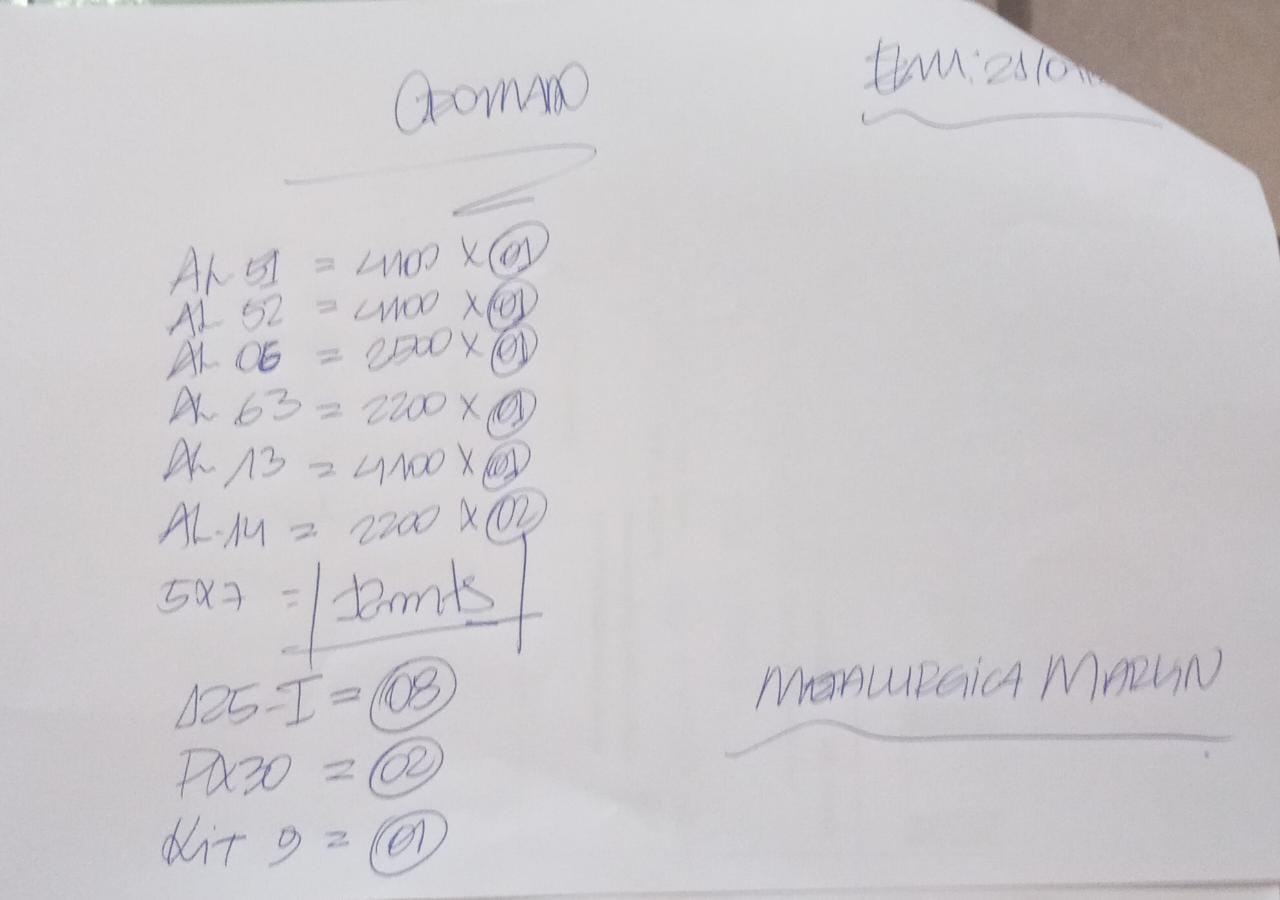 Em: 21/0
AL 51 = 4100 X 01
AL 52 = 4100 X 01
AL 06 = 2500 X 01
AL 63 = 2200 X 01
AL 13 = 4100 X 01
AL-14 = 2200 X 02
5X7 = 12mts
125-I = 08
PX30 = 02
Kit 9 = 01
METALURGICA MARLIN